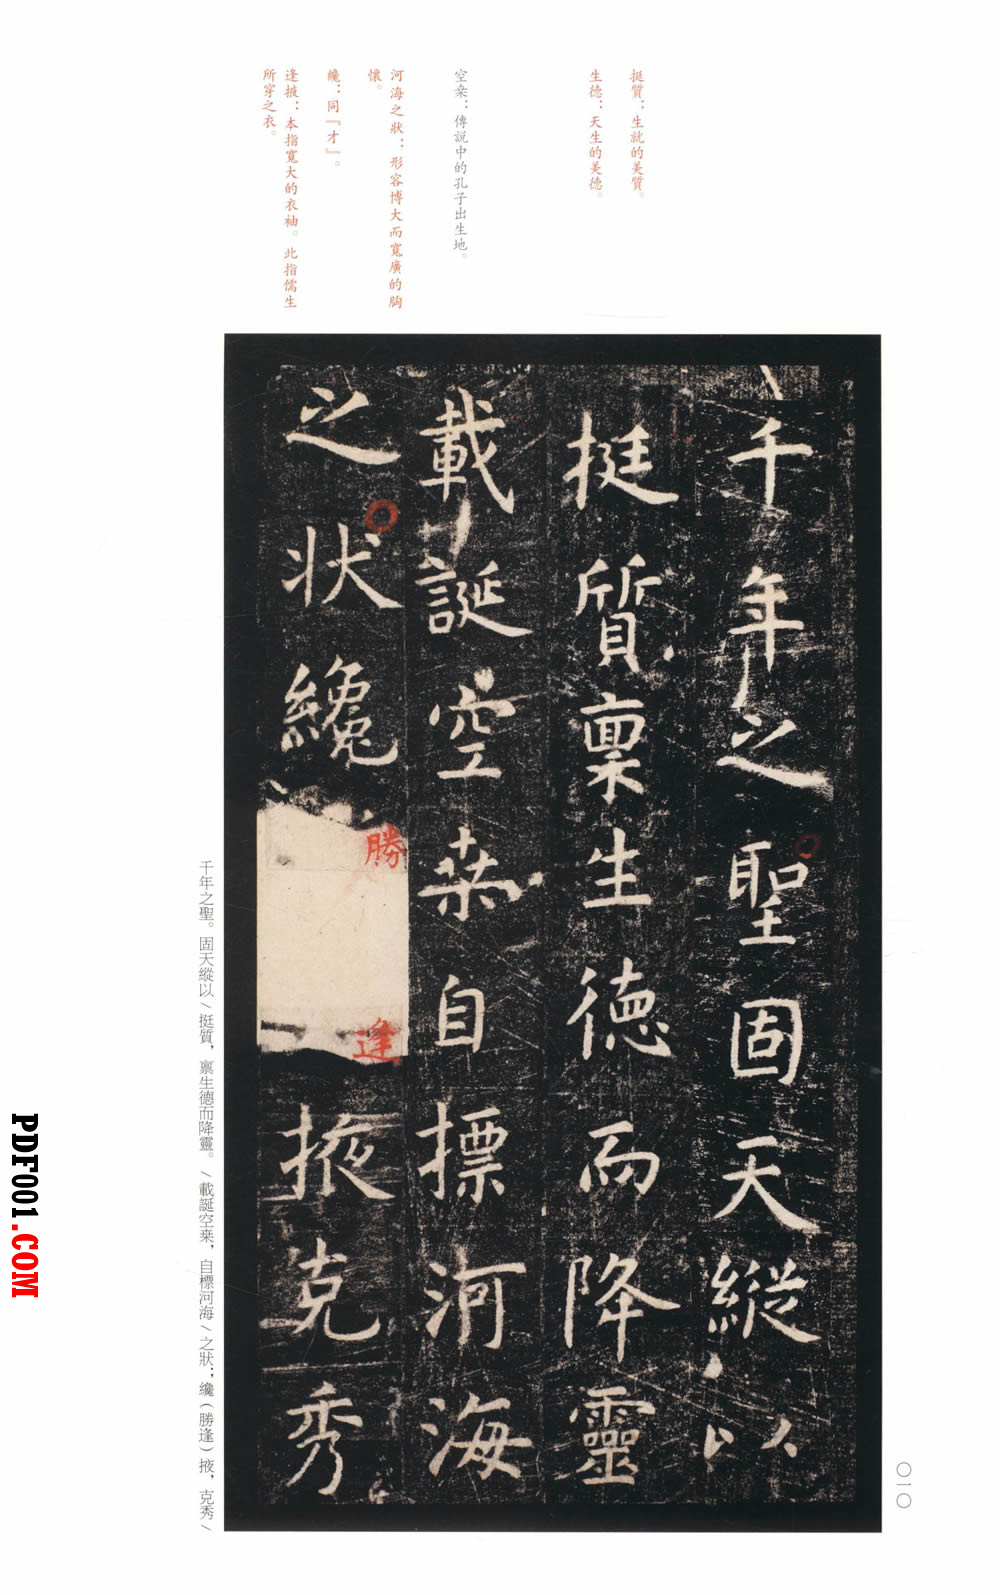 挺質：生就的美質。
生德：天生的美德。
空桒：傳説中的孔子出生地。
河海之狀：形容博大而寬廣的胸
懷。
纔：同『才』。
逢掖：本指寬大的衣袖。此指儒生
所穿之衣。
千年之聖固天縱以
挺質禀生德而降靈
載誕空桒自摽河海
之狀纔勝逢掖克秀
千年之聖。固天縱以／挺質，禀生德而降靈。／載誕空桒，自標河海／之狀；纔（勝逢）掖，克秀／
〇一〇
PDF001.COM